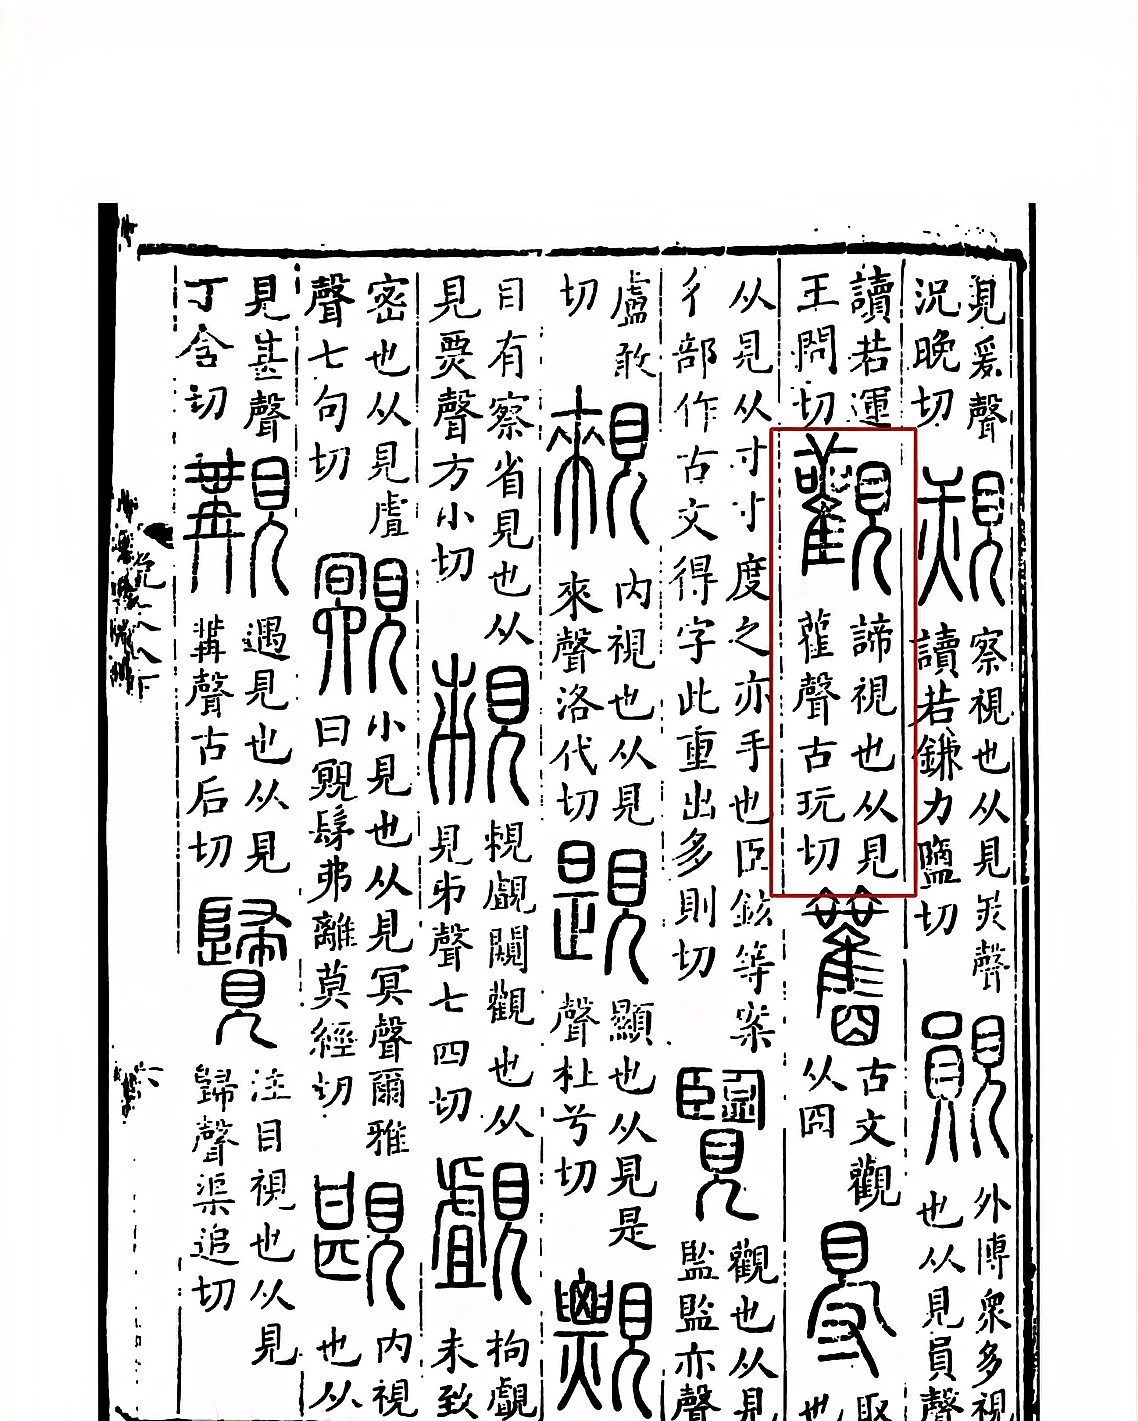 見爰聲
況晚切
覝
察視也从見㶣聲
讀若鎌力鹽切
䚋
外博衆多視
也从見員聲
讀若運
王問切
觀
諦視也从見
雚聲古玩切
𥍅
古文觀
从囧
㝵
取
也
从見从寸寸度之亦手也臣鉉等案
彳部作古文得字此重出多則切
覽
觀也从見
監監亦聲
盧敢
切
䚅
内視也从見
來聲洛代切
䚣
顯也从見是
聲杜兮切
䚇
目有察省見也从
見㶾聲方小切
䙿
䙿覰闚觀也从
見𠂔聲七四切
覰
拘覰
未致
密也从見䖒
聲七句切
覭
小見也从見冥聲爾雅
曰覭髳弗離莫經切
䚂
内視
也从
見甚聲
丁含切
覯
遇見也从見
冓聲古后切
注目視也从見
歸聲渠追切
說八下
六